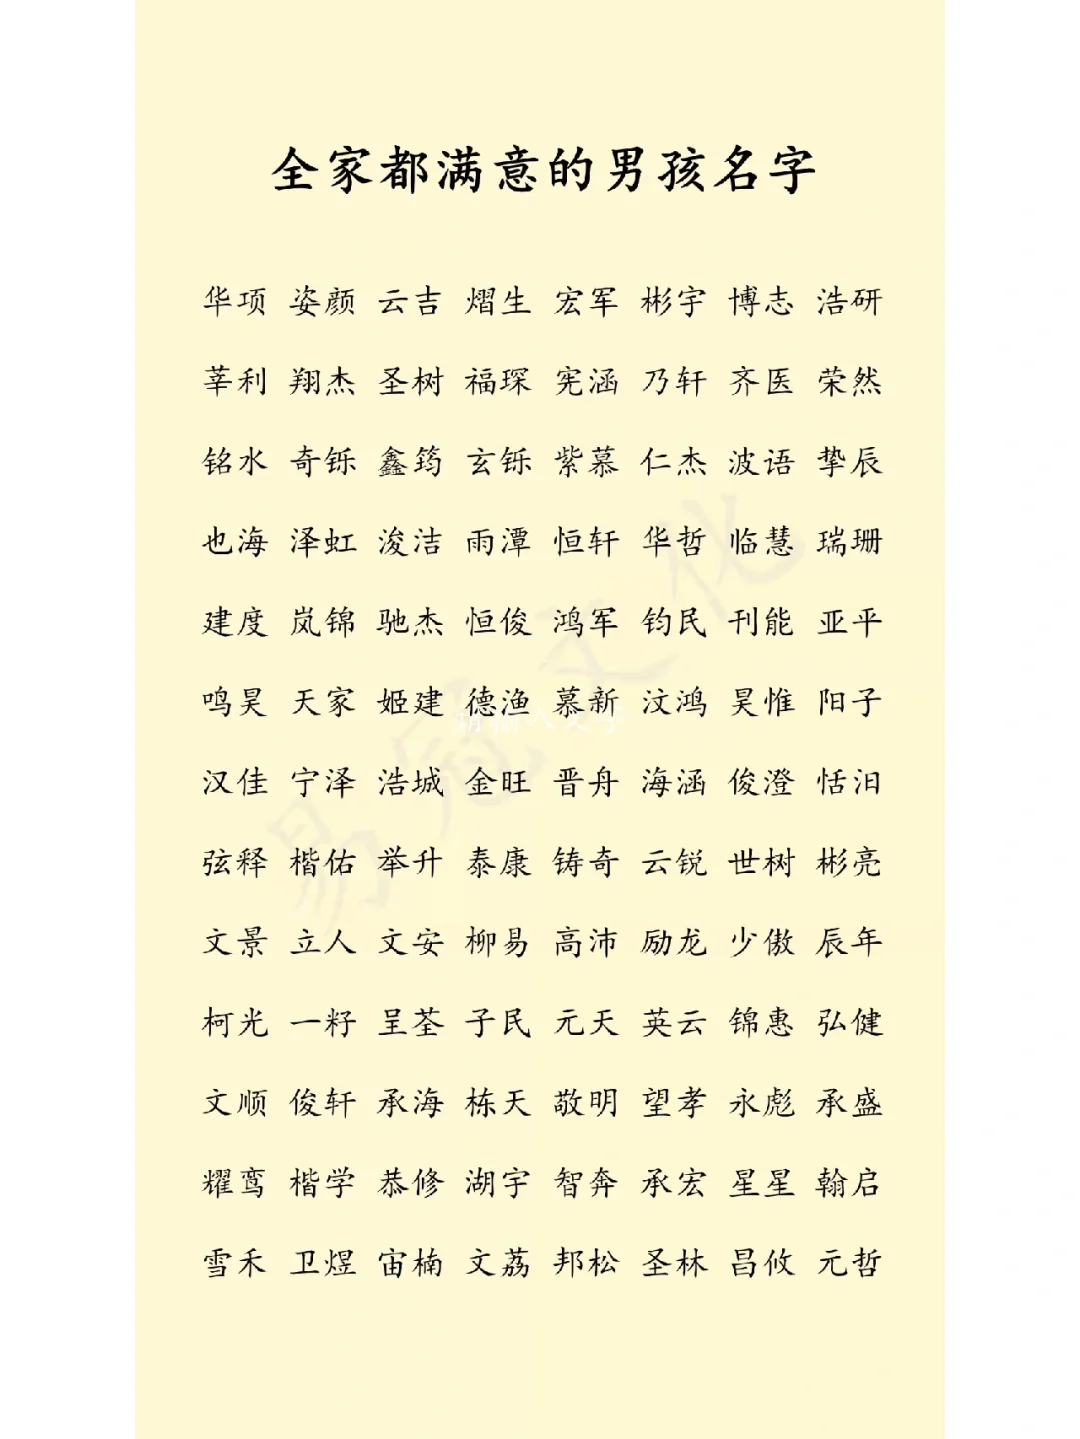 全家都满意的男孩名字
华项 姿颜 云吉 熠生 宏军 彬宇 博志 浩研
莘利 翔杰 圣树 福琛 宪涵 乃轩 齐医 荣然
铭水 奇铄 鑫筠 玄铄 紫慕 仁杰 波语 挚辰
也海 泽虹 浚洁 雨潭 恒轩 华哲 临慧 瑞珊
建度 岚锦 驰杰 恒俊 鸿军 钧民 刊能 亚平
鸣昊 天家 姬建 德渔 慕新 汶鸿 昊惟 阳子
汉佳 宁泽 浩城 金旺 晋舟 海涵 俊澄 恬汩
弦释 楷佑 举升 泰康 铸奇 云锐 世树 彬亮
文景 立人 文安 柳易 高沛 励龙 少傲 辰年
柯光 一籽 呈荃 子民 元天 英云 锦惠 弘健
文顺 俊轩 承海 栋天 敬明 望孝 永彪 承盛
耀鸾 楷学 恭修 湖宇 智奔 承宏 星星 翰启
雪禾 卫煜 宙楠 文荔 邦松 圣林 昌攸 元哲
易冕文化
请输入文字